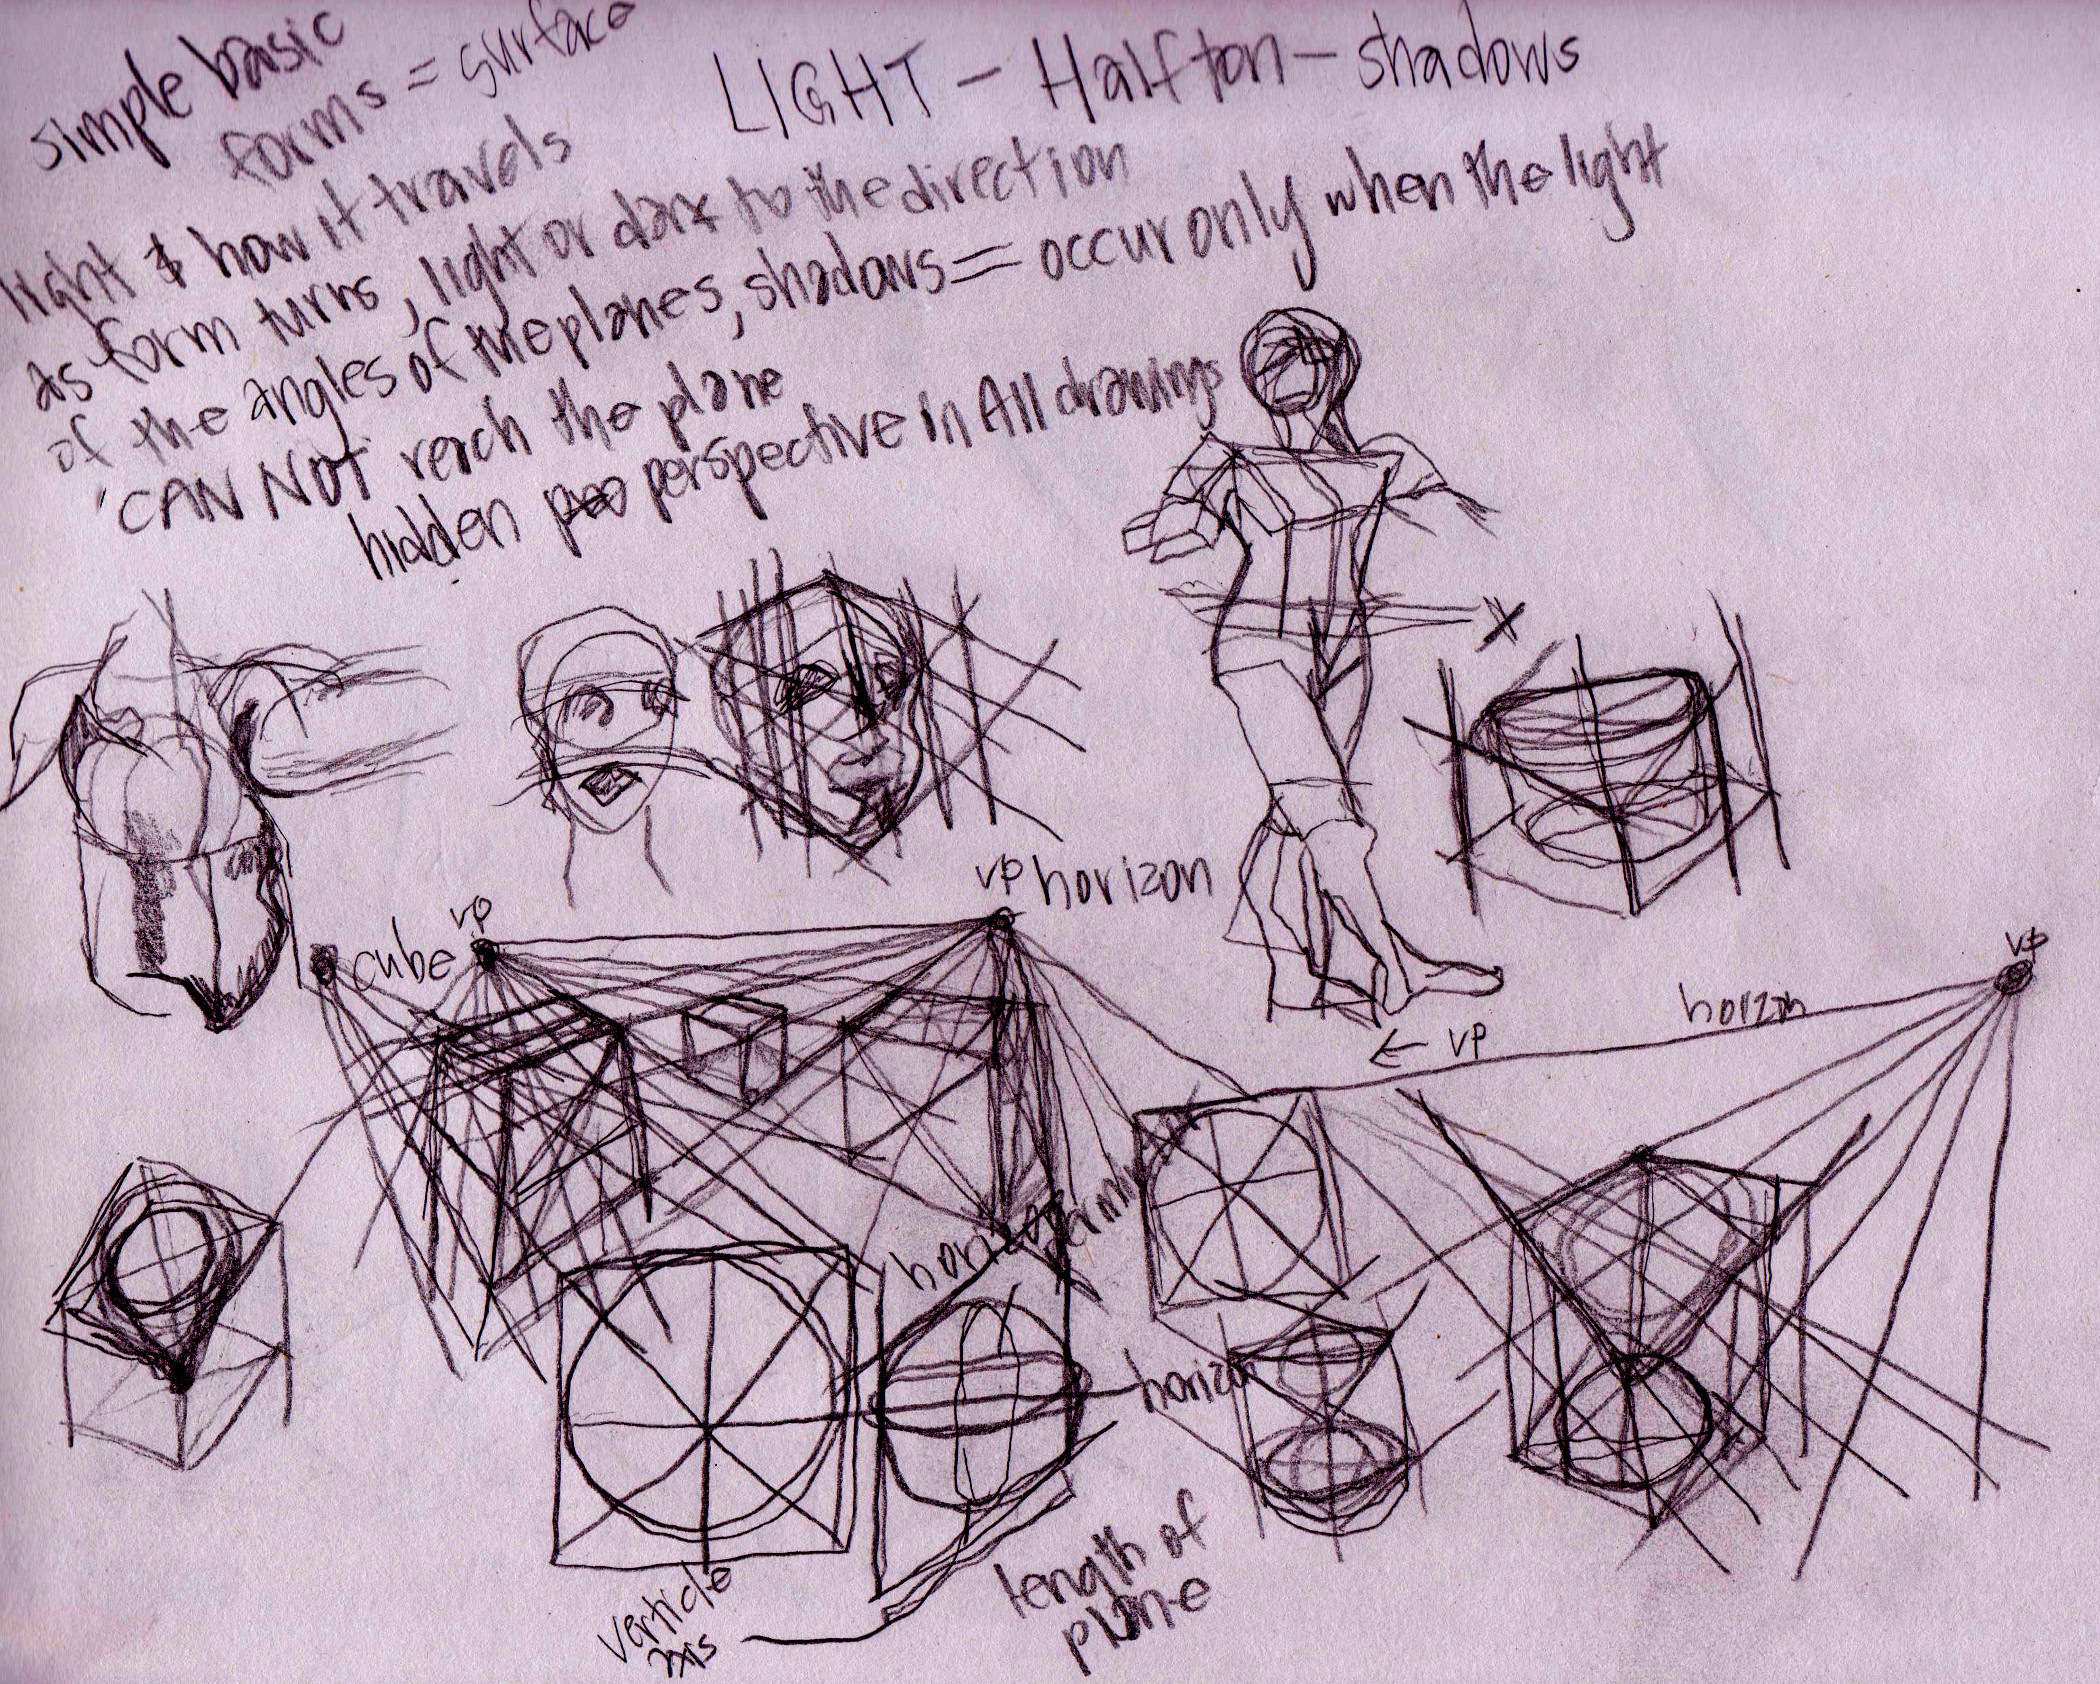 simple basic
forms = surface
LIGHT - Halfton - shadows
light & how it travels
as form turns, light or dark to the direction
of the angles of the planes, shadows = occur only when the light
CAN NOT reach the plane
hidden perspective in All drawings
vp horizon
cube
vp
vp
horizon
← vp
horizon
horizon
length of
plane
verticle
axis